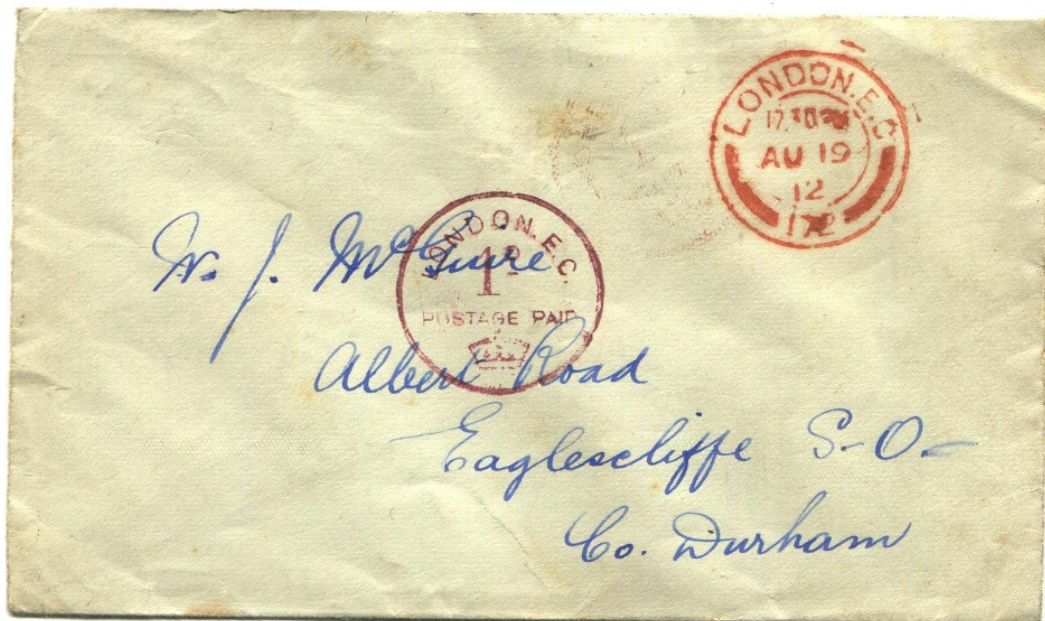 LONDON.E.C
AU 19
12
172
LONDON.E.C.
1D
POSTAGE PAID
W. J. McGuire
Albert Road
Eaglescliffe S.O.
Co. Durham